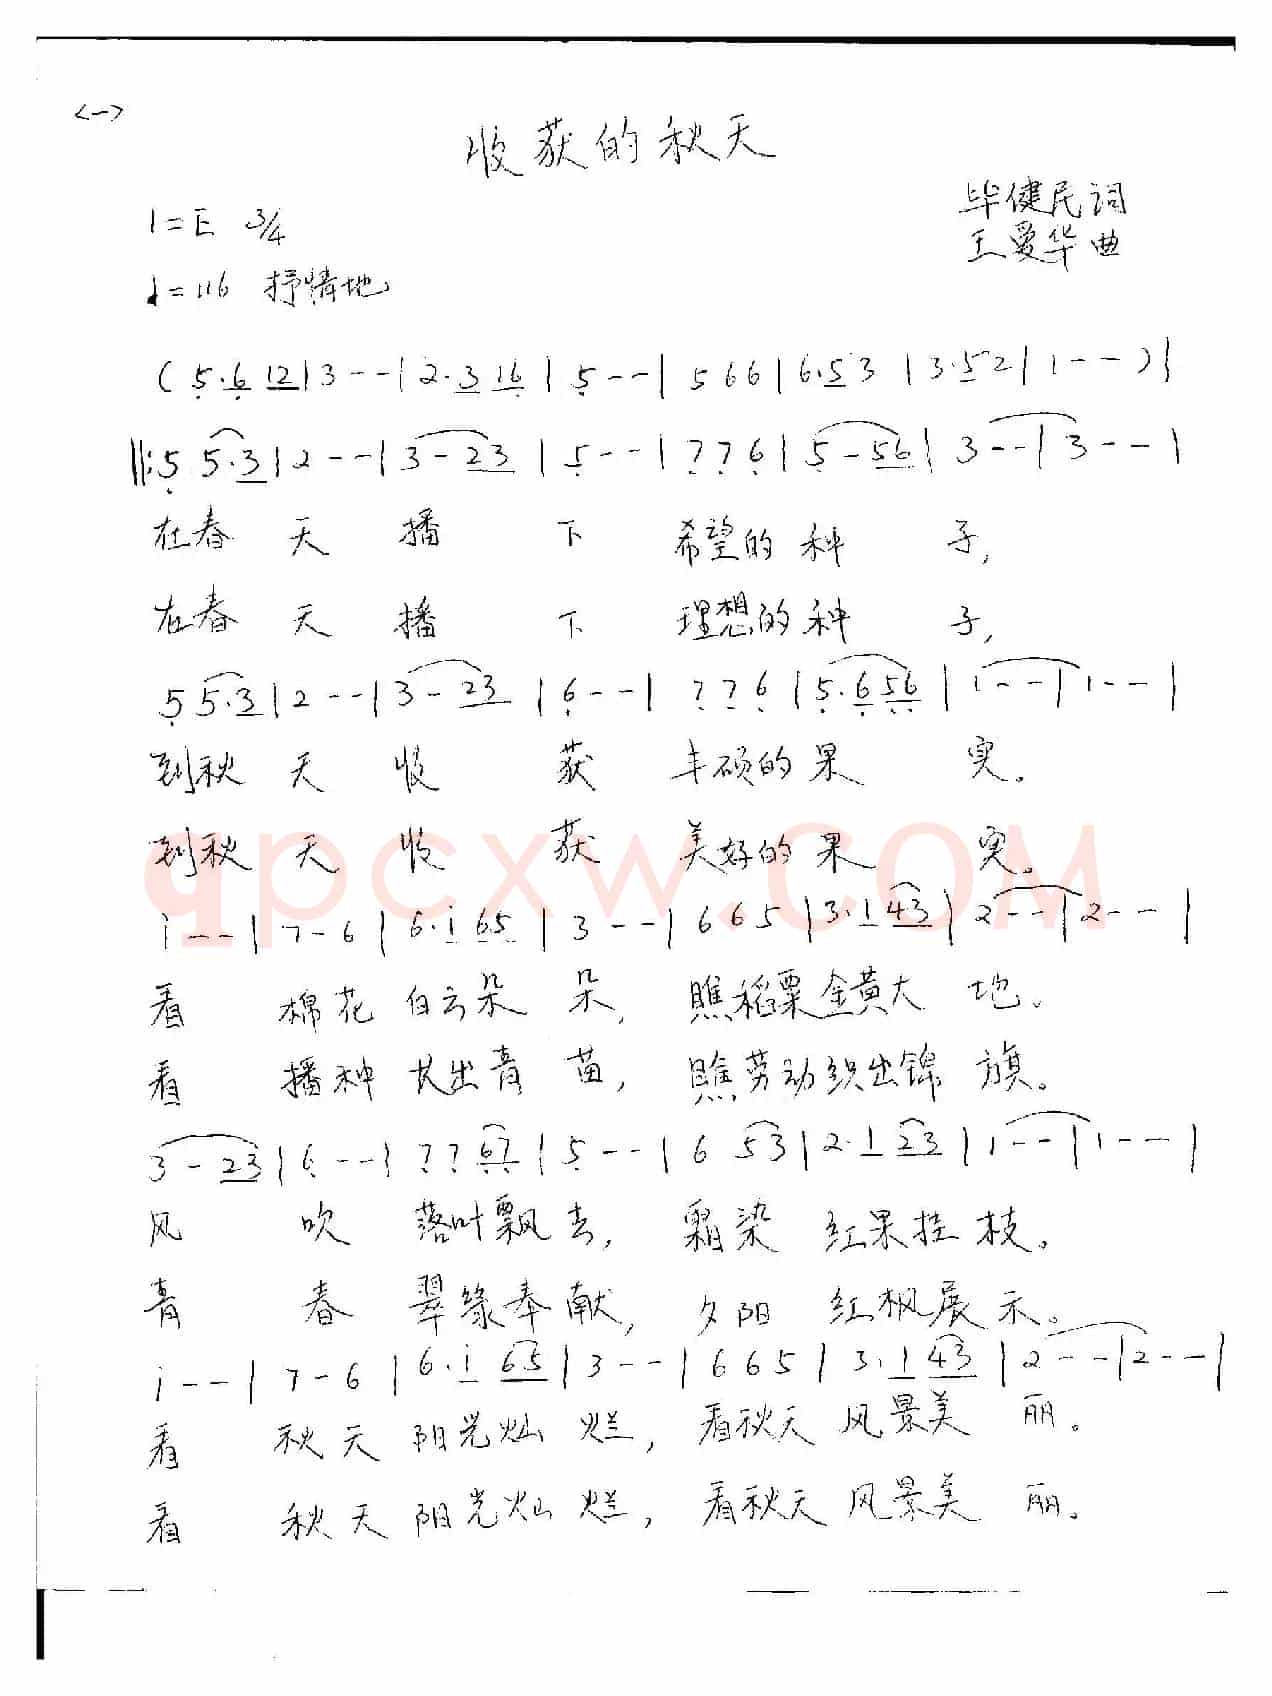 <一>
收获的秋天
毕健民词
1=E 3/4
王曼华曲
♩=116 抒情地
(5.6 12|3--|2.3 16|5--|566|6.53|3.52|1--)|
‖:5 5.3|2--|3-23|5--|776|5-56|3--|3--|
在春天播下希望的种子,
在春天播下理想的种子,
5 5.3|2--|3-23|6--|776|5.656|1--|1--|
到秋天收获丰硕的果实。
到秋天收获美好的果实。
qpcxw.com
i--|7-6|6.i 65|3--|665|3.1 43|2--|2--|
看棉花白云朵朵,瞧稻粟金黄大地。
看播种长出青苗,瞧劳动织出锦旗。
3-23|6--|7767|5--|6 53|2.1 23|1--|1--|
风吹落叶飘去,霜染红果挂枝。
青春翠缘奉献,夕阳红枫展示。
i--|7-6|6.i 65|3--|665|3.1 43|2--|2--|
看秋天阳光灿烂,看秋天风景美丽。
看秋天阳光灿烂,看秋天风景美丽。